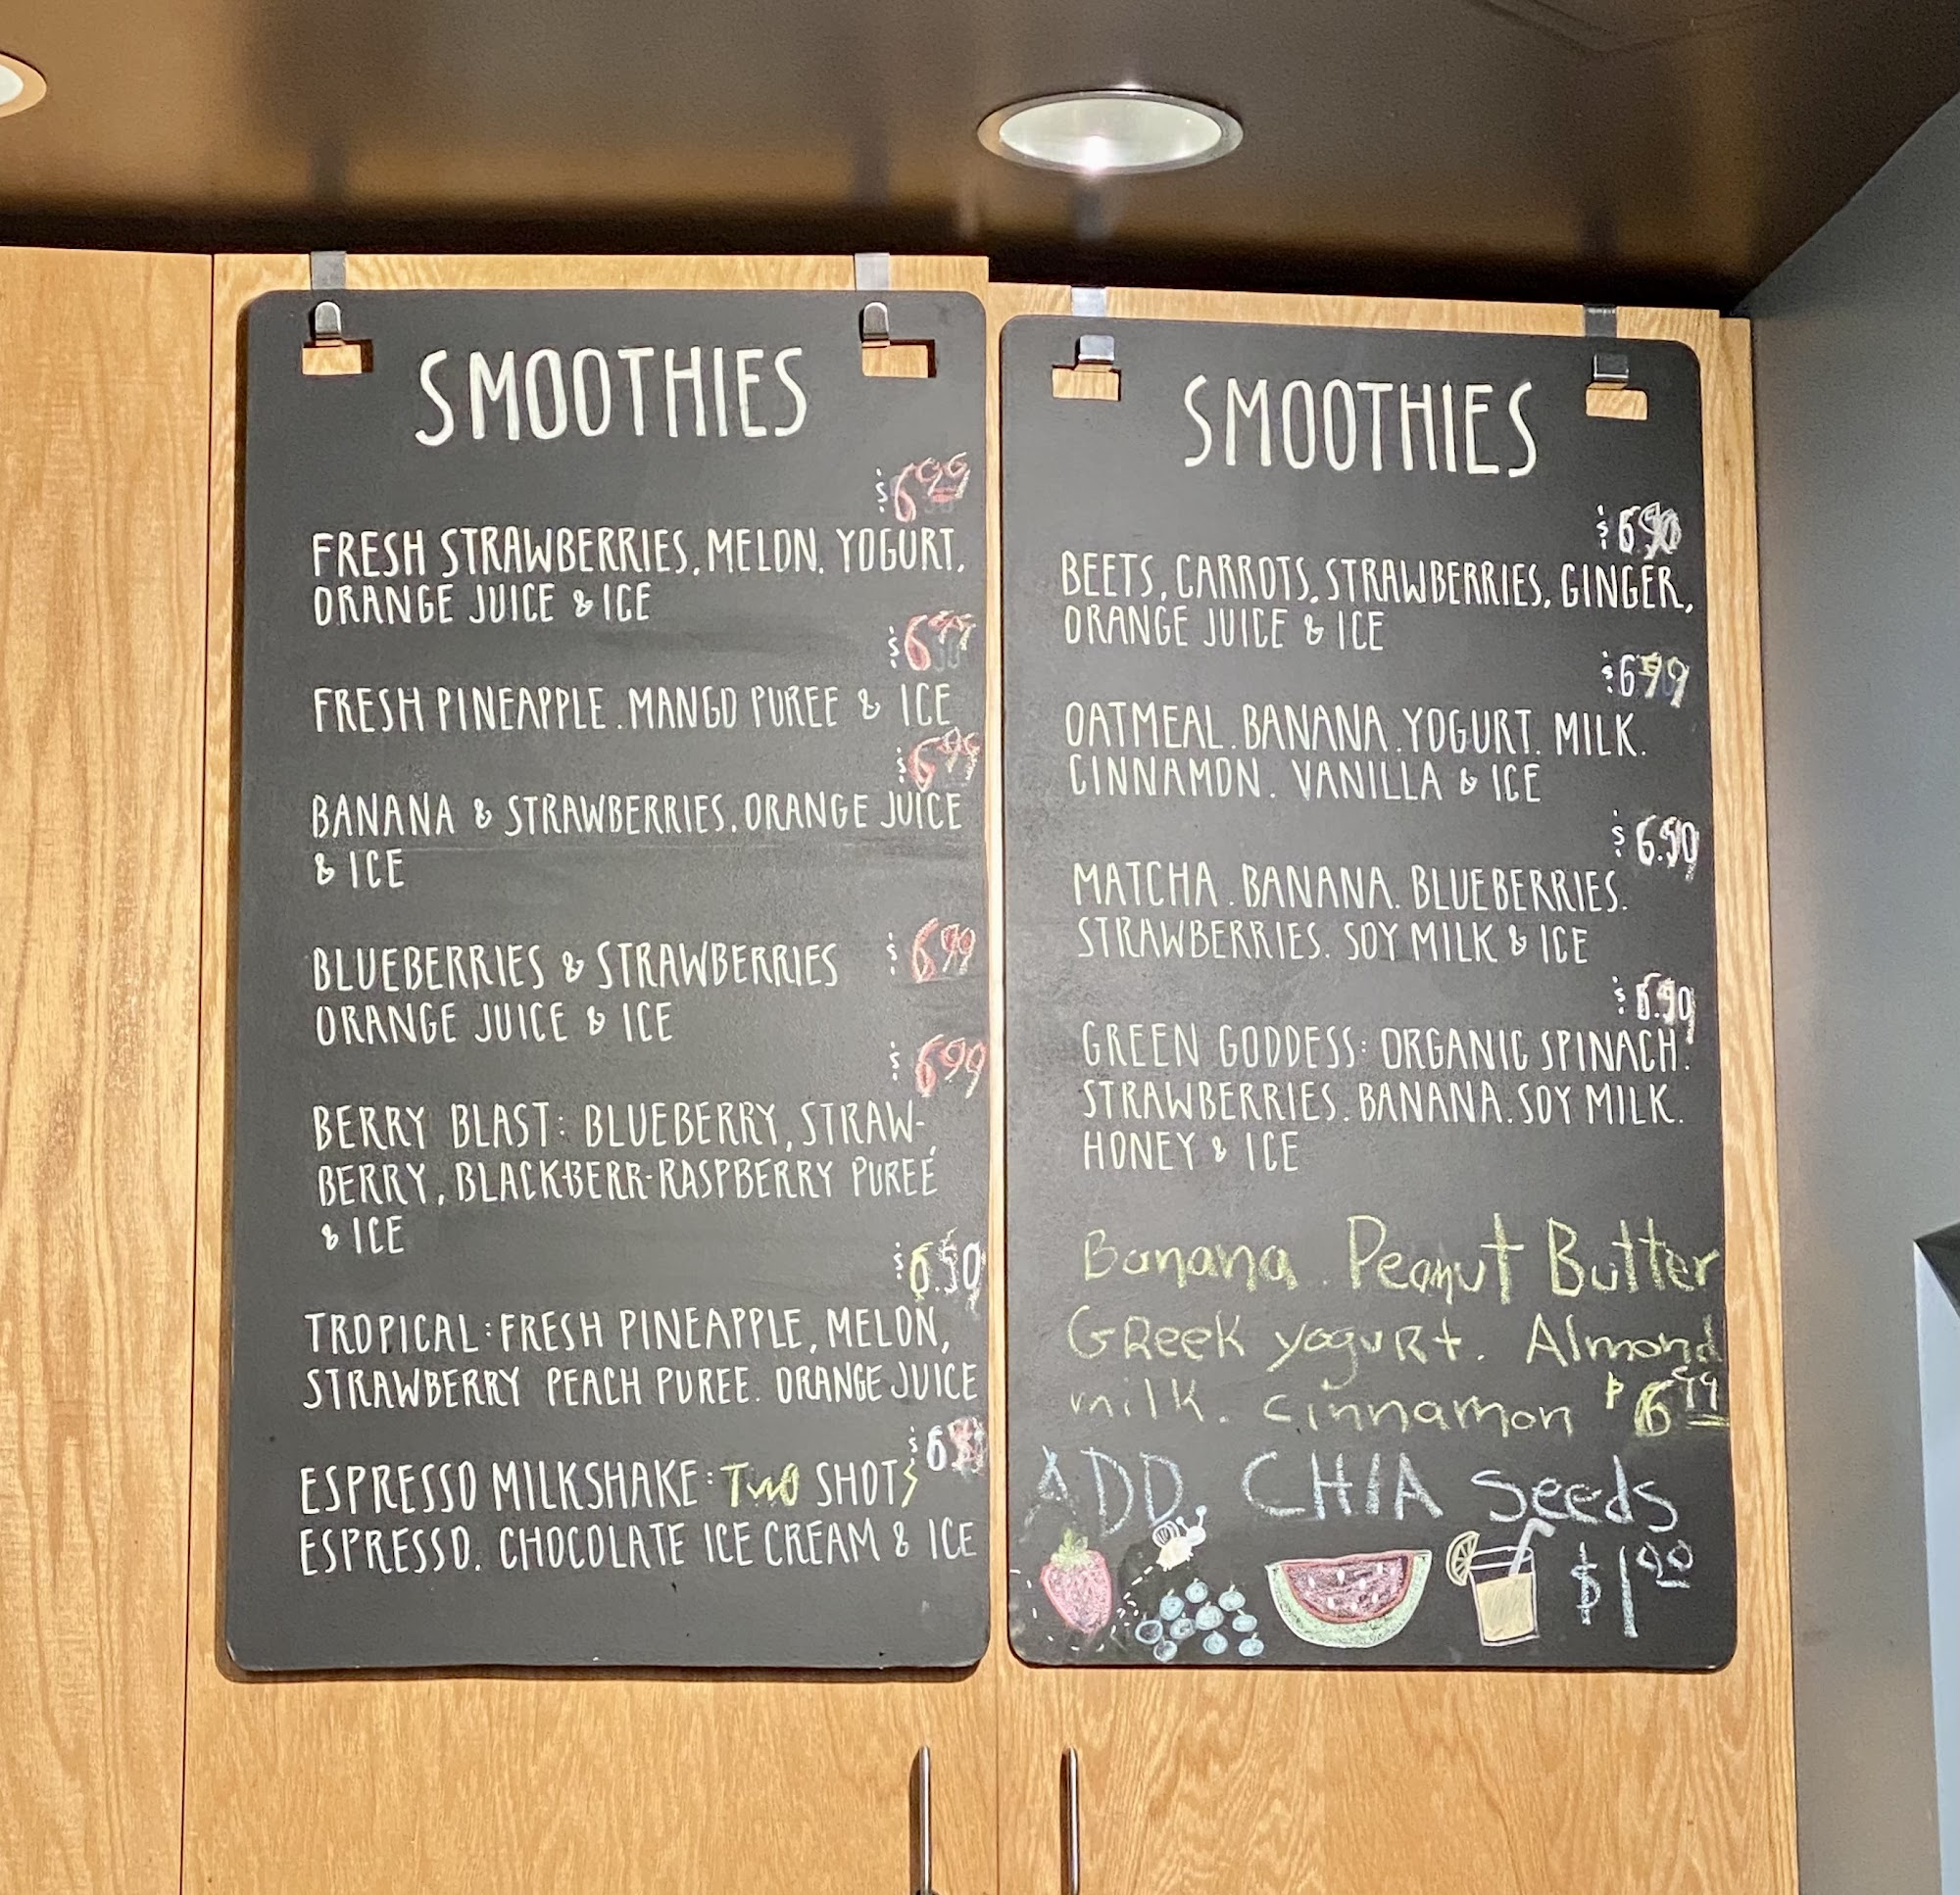 SMOOTHIES
$6.99
FRESH STRAWBERRIES, MELON, YOGURT,
ORANGE JUICE & ICE
$6.99
FRESH PINEAPPLE. MANGO PUREE & ICE
$6.99
BANANA & STRAWBERRIES. ORANGE JUICE
& ICE
BLUEBERRIES & STRAWBERRIES $6.99
ORANGE JUICE & ICE
$6.99
BERRY BLAST: BLUEBERRY, STRAW-
BERRY, BLACKBERR-RASPBERRY PUREE
& ICE
$6.50
TROPICAL: FRESH PINEAPPLE, MELON,
STRAWBERRY PEACH PUREE. ORANGE JUICE
ESPRESSO MILKSHAKE: TWO SHOTS
ESPRESSO. CHOCOLATE ICE CREAM & ICE
SMOOTHIES
BEETS, CARROTS, STRAWBERRIES, GINGER,
ORANGE JUICE & ICE
$6.99
OATMEAL. BANANA. YOGURT. MILK.
CINNAMON. VANILLA & ICE
MATCHA. BANANA. BLUEBERRIES.
STRAWBERRIES. SOY MILK & ICE
GREEN GODDESS: ORGANIC SPINACH.
STRAWBERRIES. BANANA. SOY MILK.
HONEY & ICE
Banana. Peanut Butter
GReek yoguRt. Almond
milk. cinnamon $6.99
ADD CHIA Seeds
$1.00